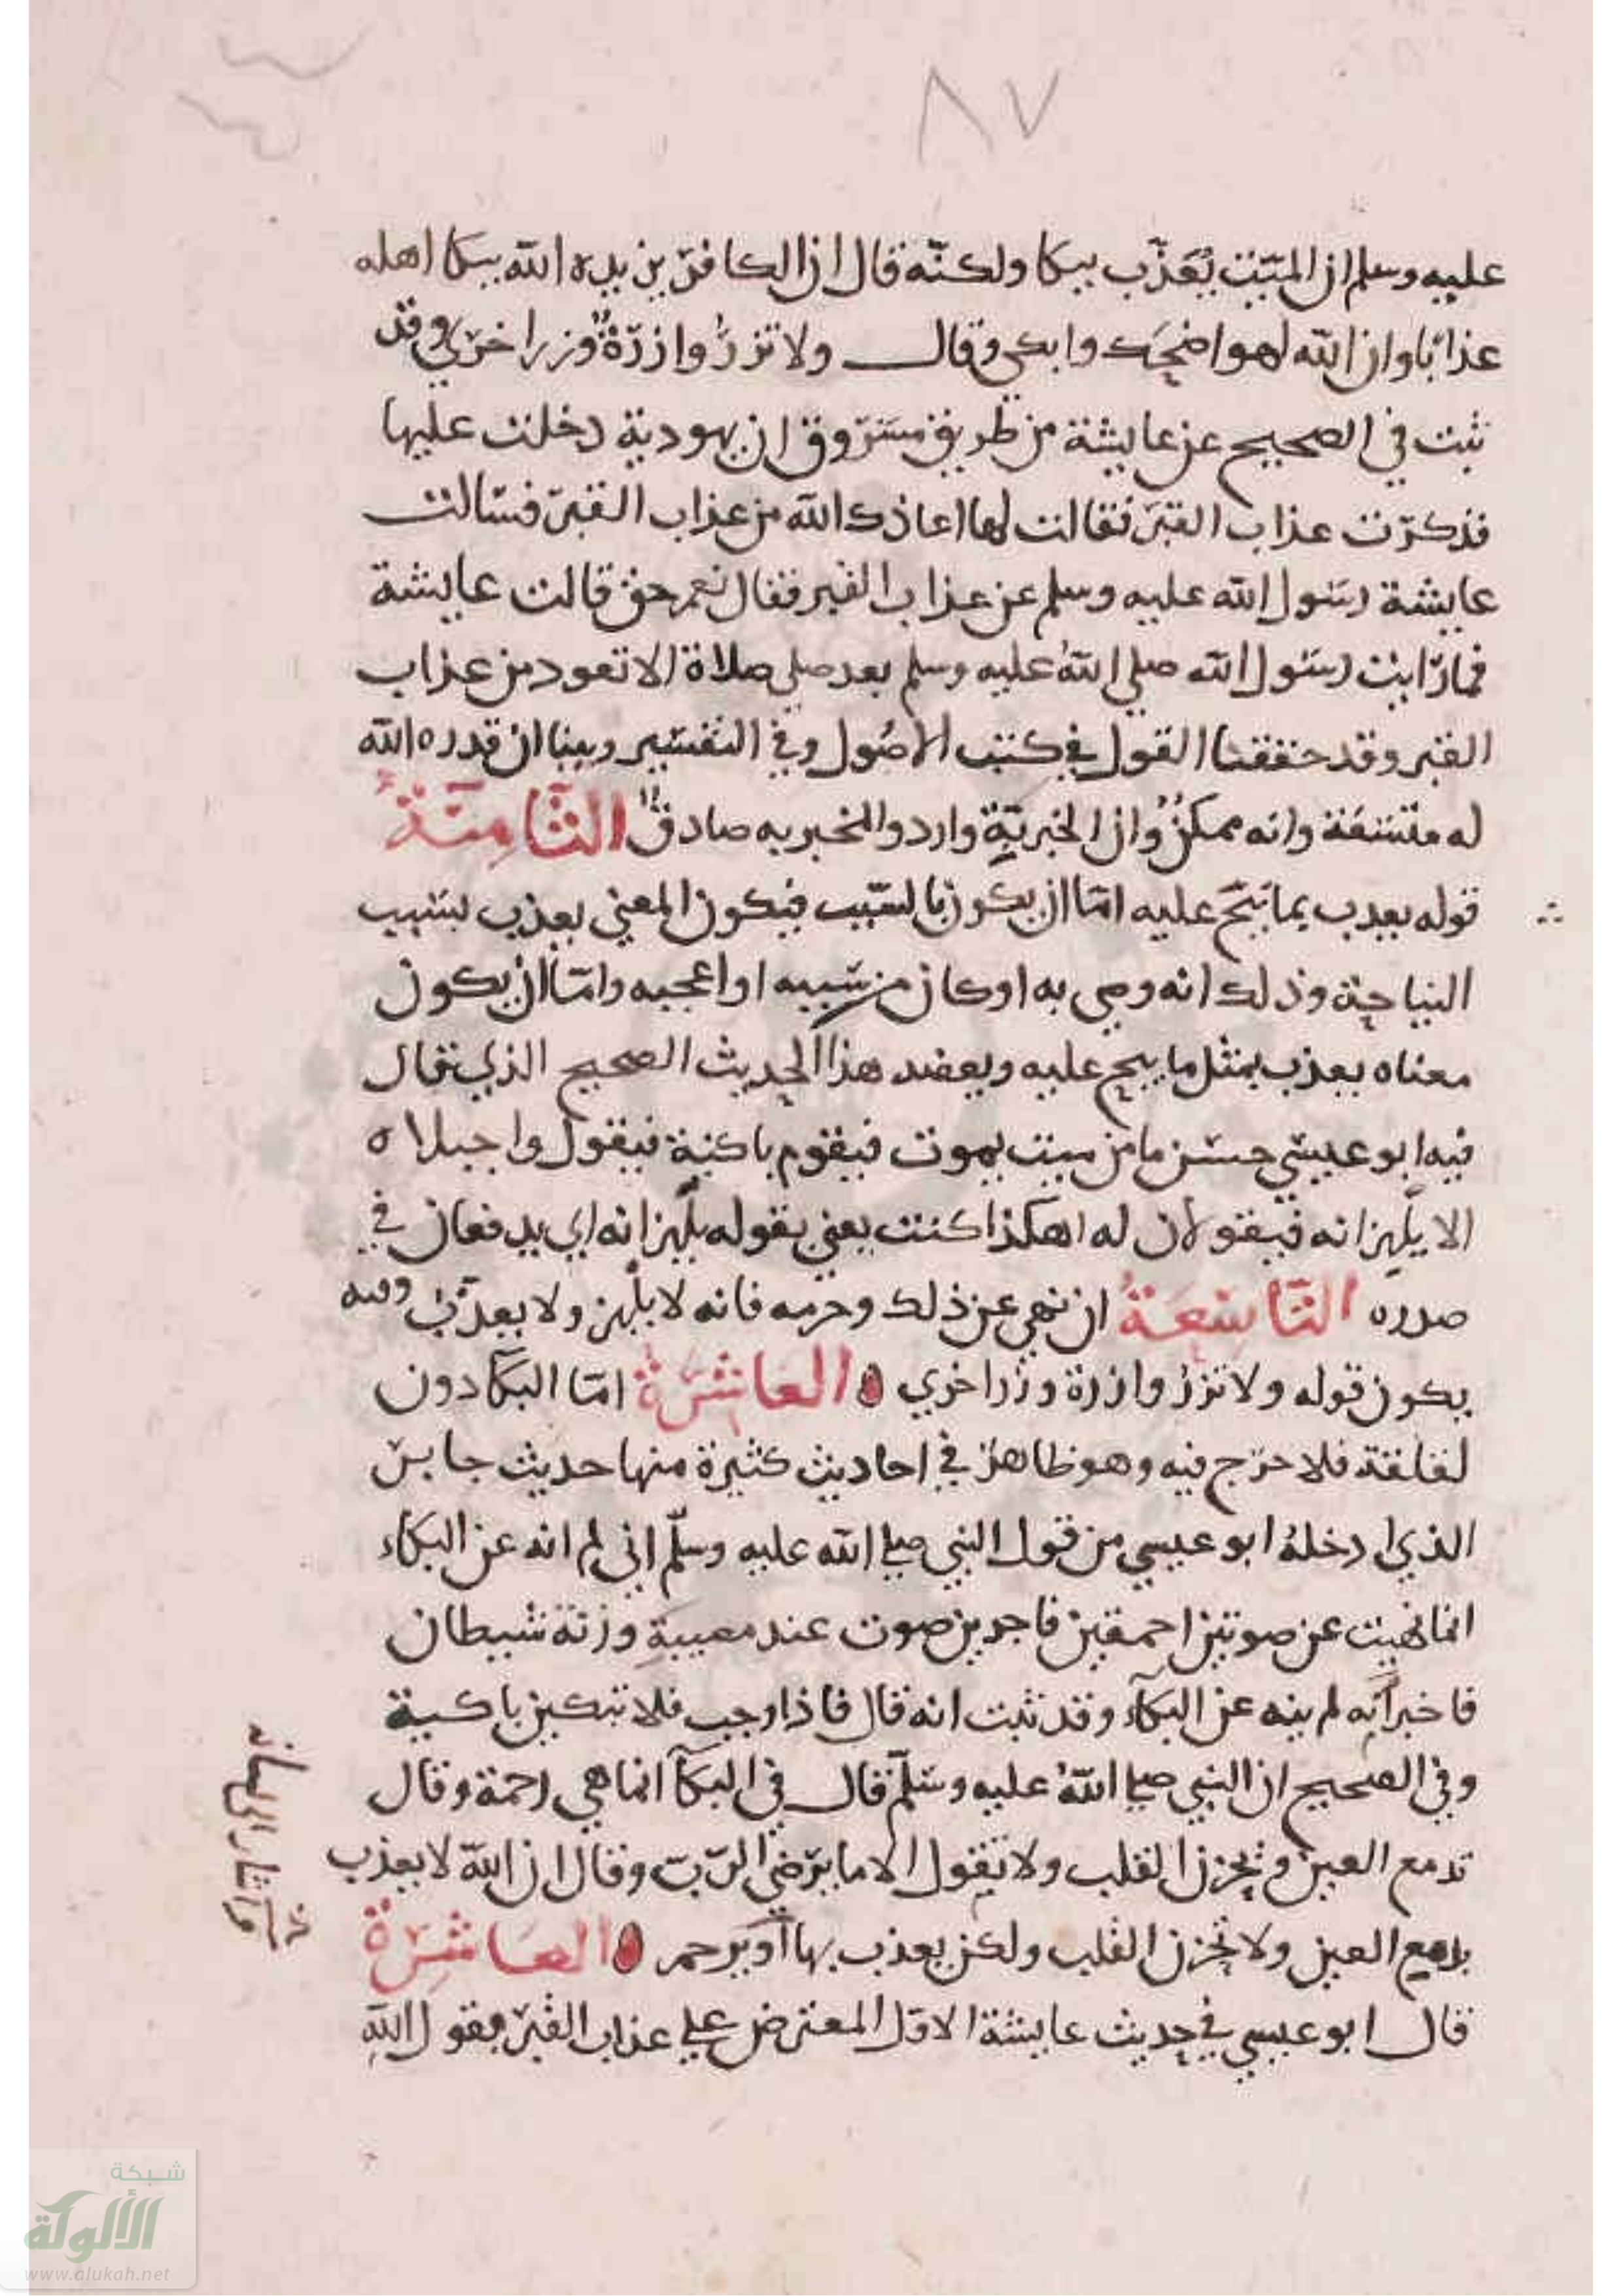 ٨٧
عليه وسلم ان الميّت يُعَذّب ببكا ولكنّه قال ان الكافر يزيده الله ببكا اهله
عذابًا وان الله لهو اضحَك وابكي وقال ولا تزرُ وازرَةٌ وزر اخرَي وقد
ثبت في الصحيح عن عايشة من طريق مسَرّوق ان يهودية دخلت عليها
فذكرَت عذاب القبَر فقالت لها اعاذك الله من عذاب القبرَ فسَالت
عايشة رسَول الله عليه وسلم عن عذاب القبر فقال نعم حق قالت عايشة
فما رَايت رسَول الله صلي اللهُ عليه وسلم بعد صلي صلاة الا تعود من عذاب
القبر وقد حققنا القول في كتب الاصُول وفي التفسَير وبينا ان قدره الله
له متسَعَة وانه ممكنٌ وان الخبر يَةِ وارد والمخبر به صادقٌ الثَّامِنَةُ
قوله يعدب بما نيحَ عليه امّا ان يكون بالسَبّب فيكون المعني يعذب بسَبب
النياحة وذلك انه وصي به او كان من سَببه او اعجبه وامّا ان يكون
معناه يعذب بمثل ما ينح عليه ويعضد هذا الحديث الصحيح الذي قال
فيه ابو عيسَي حسَن ما من ميت يموت فيقوم باكية فيقول واجبلاه
الا يلهزانه فيقولان له اهكذا كنت يعني بقوله يلهزانه اي يدفعان في
صدره التَّاسِعَةُ ان نهي عن ذلك وحرّمه فانه لا يلهز ولا يعذّب وفيه
يكون قوله ولا تزرُ وازرة وزر اخري العاشرَةُ امّا البكا دون
لقلقة فلا حرَج فيه وهو ظاهرٌ في احاديث كثيرة منها حديث جابرَ
الذي ادخلهُ ابو عيسي من قول النبي صلي الله عليه وسلّم اني لم انه عن البكاء
انما نهيت عن صوتين احمقين فاجرين صوت عند مصيبةِ ورنة شيطان
فاخبر انّه لم ينه عن البكآء وقد ثبت انه قال فاذا وجب فلا تبكين باكية
وفي الصحيح ان النبي صلي اللهُ عليه وسَلّم قال في البكآ انما هي رحمة وقال
تدمع العين ويحزن القلب ولا نقول الا ما يرَضي الرّبّ وقال ان الله لا يعذب
بدمع العين ولا بحزن القلب ولكن يعذب بها او يرحم العَاشِرَة
قال ابو عيسي في حديث عايشة الاوّل المعترض علي عذاب القبرَ بقول اللهِ
واشار الي لسانه
شبكة
الألوكة
www.alukah.net